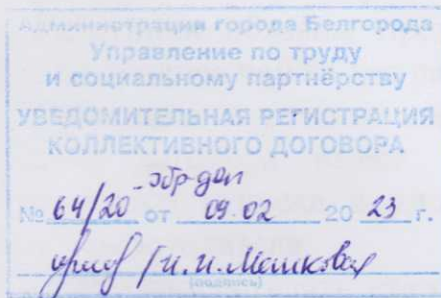 Администрация города Белгорода
Управление по труду
и социальному партнёрству
УВЕДОМИТЕЛЬНАЯ РЕГИСТРАЦИЯ
КОЛЛЕКТИВНОГО ДОГОВОРА
№ 64/20 от 09.02 2023 г.
(подпись)